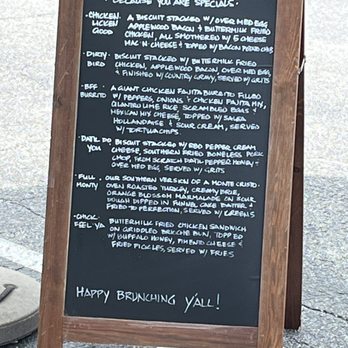 BECAUSE YOU ARE SPECIALS.
- CHICKEN A BISCUIT STACKED W/ OVER MED EGG,
LICKEN APPLEWOOD BACON & BUTTERMILK FRIED
GOOD CHICKEN, ALL SMOTHERED W/ 5 CHEESE
MAC N CHEESE & TOPPED W/ BACON
- DIRTY BISCUIT STACKED W/ BUTTERMILK FRIED
BIRD CHICKEN, APPLEWOOD BACON, OVER MED EGG,
& FINISHED W/ COUNTRY GRAVY, SERVED W/ GRITS
- BFF A GIANT CHICKEN FAJITA BURRITO FILLED
BURRITO W/ PEPPERS, ONIONS & CHICKEN FAJITA MIX,
CILANTRO LIME RICE, SCRAMBLED EGGS &
MEXICAN MIX CHEESE, TOPPED W/ SALSA
HOLLANDAISE & SOUR CREAM, SERVED
W/ TORTILLA CHIPS.
- DAT'L DO BISCUIT STACKED W/ RED PEPPER CREAM
YOU CHEESE, SOUTHERN FRIED BONELESS PORK
CHOP, FROM SCRATCH DATIL PEPPER HONEY &
OVER MED EGG, SERVED W/ GRITS
FULL OUR SOUTHERN VERSION OF A MONTE CRISTO.
MONTY OVEN ROASTED TURKEY, CREAMY BRIE,
ORANGE BLOSSOM MARMALADE ON SOUR
DOUGH DIPPED IN FUNNEL CAKE BATTER &
FRIED TO PERFECTION, SERVED W/ GREENS
- CHICK BUTTERMILK FRIED CHICKEN SANDWICH
FEEL YA ON GRIDDLED BRIOCHE BUN, TOPPED
W/ BUFFALO HONEY, PIMENTO CHEESE &
FRIED PICKLES, SERVED W/ FRIES
HAPPY BRUNCHING Y'ALL!